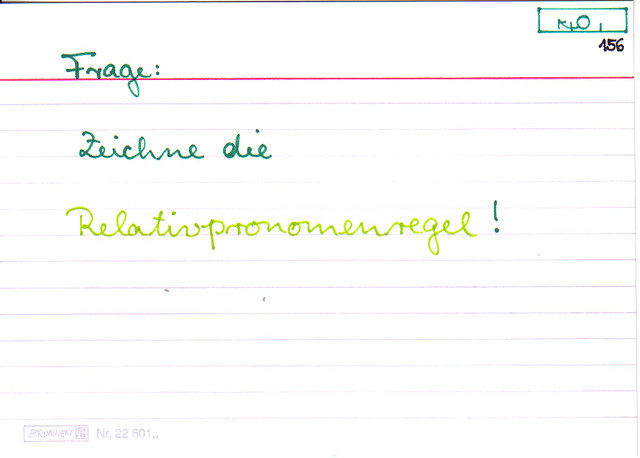 156
Frage:
Zeichne die
Relativpronomenregel!
BRUNNEN Nr. 22 601..